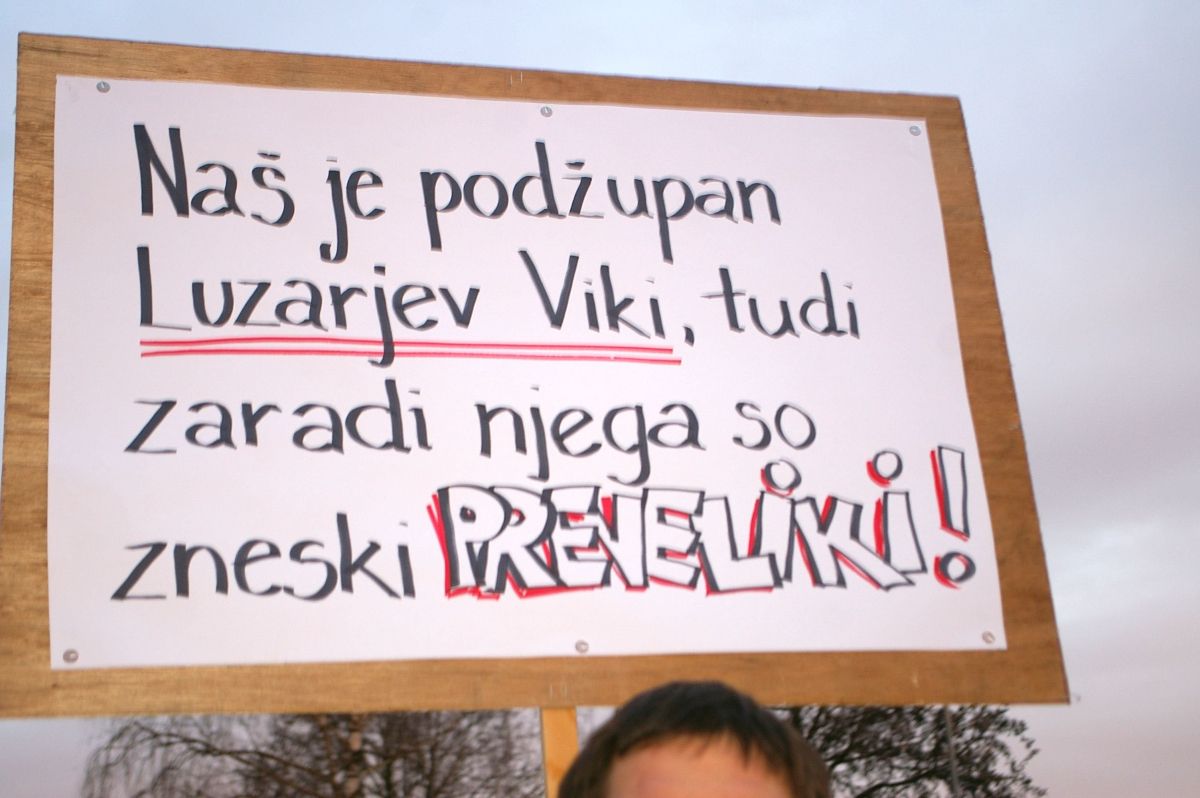 Naš je podžupan
Luzarjev Viki, tudi
zaradi njega so
zneski PREVELiKi!